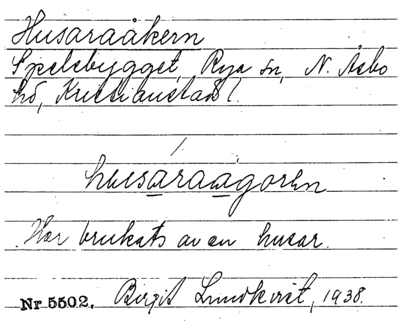 Husaraåkern
Spelsbygget, Rya sn, N. Åsbo
hd, Kristianstads l.
husaraågoren
Har brukats av en husar.
Nr 5502. Birgit Lundkvist, 1938.